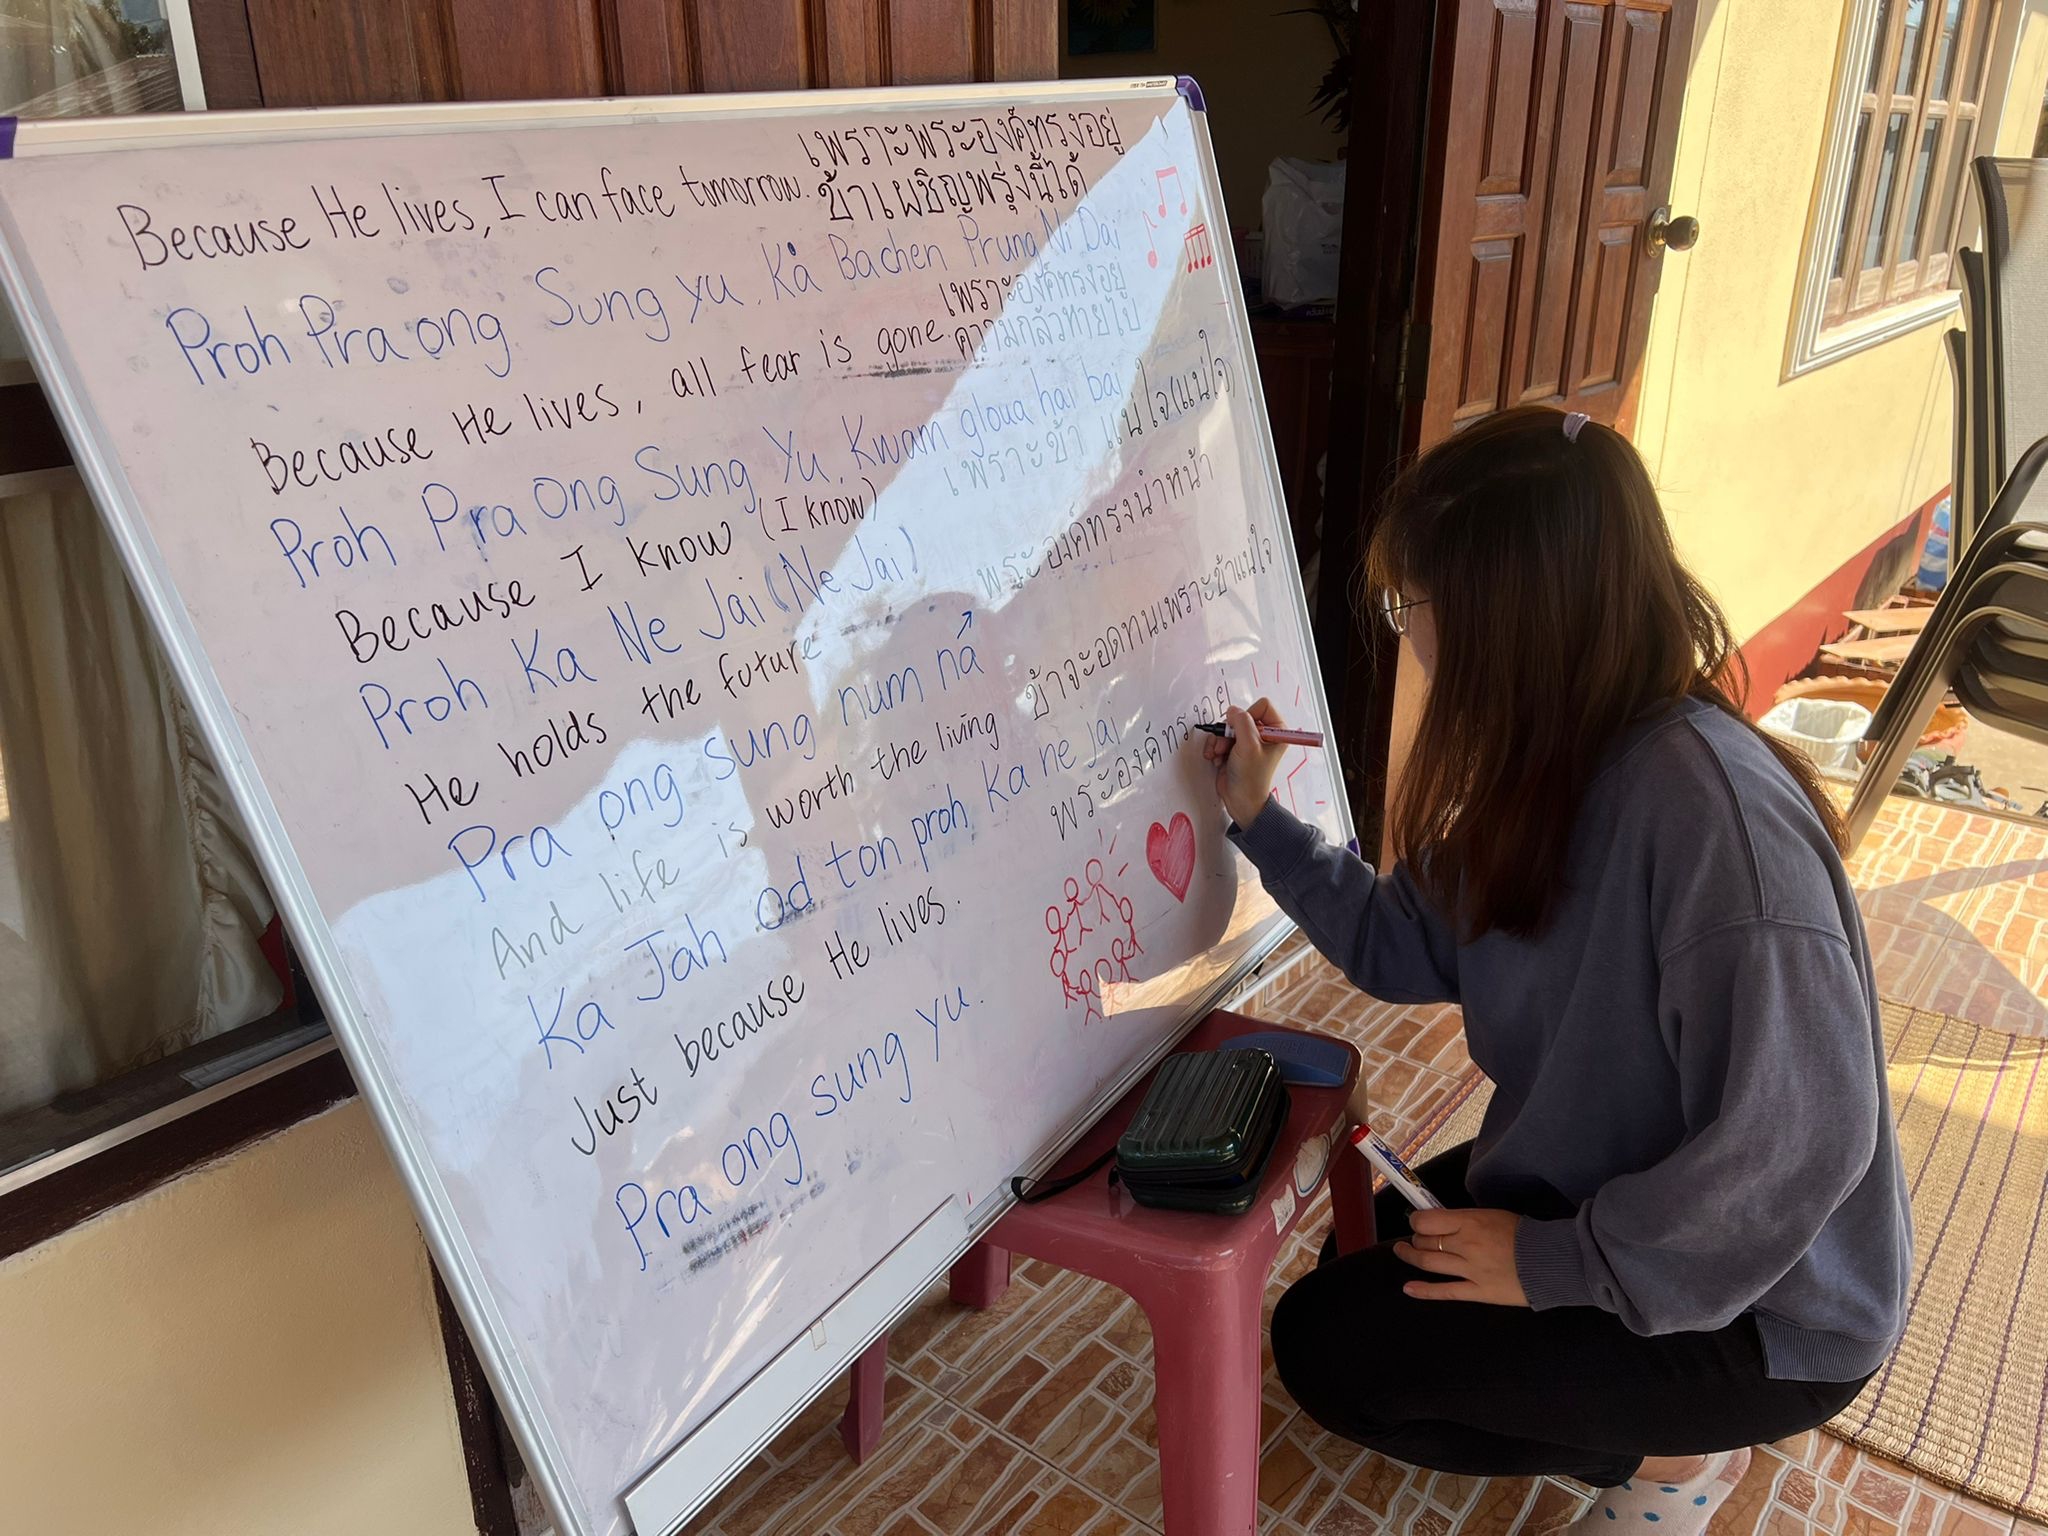 Because He lives, I can face tomorrow. เพราะพระองค์ทรงอยู่
ข้าเผชิญพรุ่งนี้ได้
Proh Pra ong Sung yu. Ka Bachen Prung Ni Dai
Because He lives, all fear is gone. เพราะองค์ทรงอยู่
ความกลัวหายไป
Proh Pra Ong Sung Yu. Kwam gloua hai bai
Because I know (I know) เพราะข้า แน่ใจ(แน่ใจ)
Proh Ka Ne Jai (Ne Jai)
He holds the future พระองค์ทรงนำหน้า
Pra ong sung num na
And life is worth the living ข้าจะอดทนเพราะข้าแน่ใจ
Ka Jah od ton proh Ka ne jai
Just because He lives. พระองค์ทรงอยู่
Pra ong sung yu.